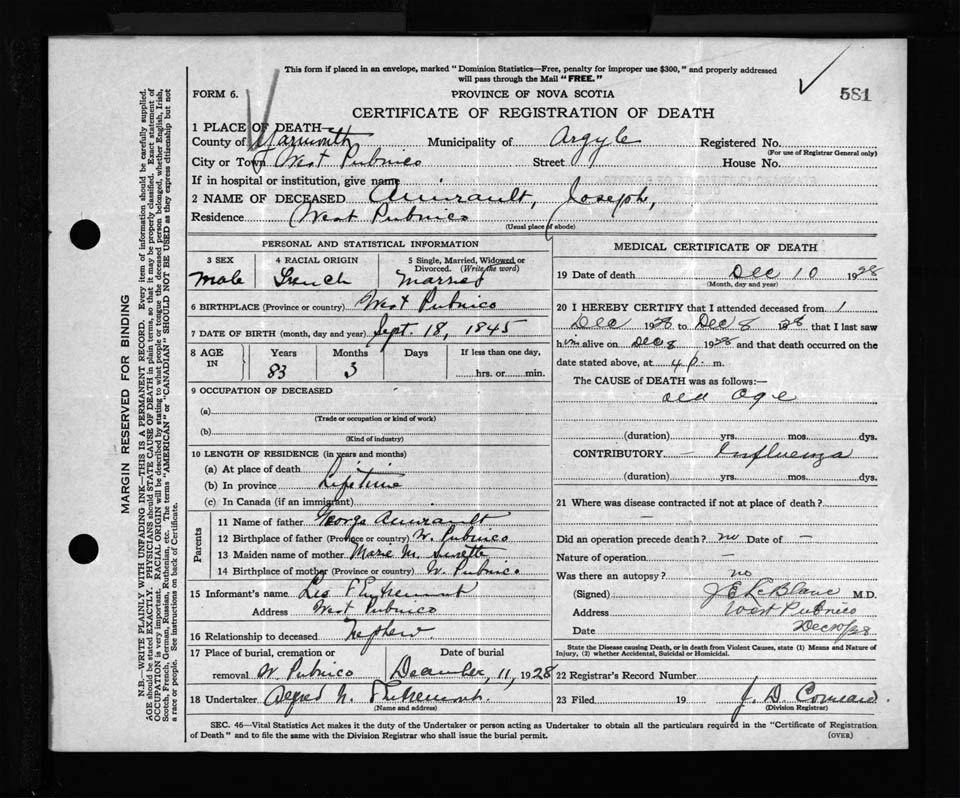 This form if placed in an envelope, marked "Dominion Statistics—Free, penalty for improper use $300," and properly addressed
will pass through the Mail "FREE."
581
FORM 6.
PROVINCE OF NOVA SCOTIA
CERTIFICATE OF REGISTRATION OF DEATH
1 PLACE OF DEATH—
County of Yarmouth Municipality of Argyle Registered No.
(For use of Registrar General only)
City or Town West Pubnico Street House No.
If in hospital or institution, give name
2 NAME OF DECEASED Amirault, Joseph,
Residence West Pubnico
(Usual place of abode)
PERSONAL AND STATISTICAL INFORMATION
3 SEX 4 RACIAL ORIGIN 5 Single, Married, Widowed or
Divorced. (Write the word)
Male French Married
6 BIRTHPLACE (Province or country) West Pubnico
7 DATE OF BIRTH (month, day and year) Sept. 18, 1845
8 AGE IN Years Months Days If less than one day,
83 3 hrs. or min.
9 OCCUPATION OF DECEASED
(a)
(Trade or occupation or kind of work)
(b)
(Kind of industry)
10 LENGTH OF RESIDENCE (in years and months)
(a) At place of death
(b) In province Lifetime
(c) In Canada (if an immigrant)
Parents
11 Name of father George Amirault
12 Birthplace of father (Province or country) W. Pubnico
13 Maiden name of mother Marie M.
14 Birthplace of mother (Province or country) W. Pubnico
15 Informant's name Leo
Address West Pubnico
16 Relationship to deceased Nephew.
17 Place of burial, cremation or Date of burial
removal W Pubnico December, 11, 1928
18 Undertaker Alfred N.
(Name and address)
MEDICAL CERTIFICATE OF DEATH
19 Date of death Dec 10 1928
(Month, day and year)
20 I HEREBY CERTIFY that I attended deceased from 1
Dec 1928 to Dec 8 1928 that I last saw
him alive on Dec 8 1928 and that death occurred on the
date stated above, at 4 p. m.
The CAUSE of DEATH was as follows:—
Old Age
(duration) yrs. mos. dys.
CONTRIBUTORY — Influenza
(duration) yrs. mos. dys.
21 Where was disease contracted if not at place of death?
Did an operation precede death? no Date of —
Nature of operation —
Was there an autopsy? no
(Signed) J E LeBlanc M.D.
Address West Pubnico
Date Dec 10/28
State the Disease causing Death, or in death from Violent Causes, state (1) Means and Nature of
Injury, (2) whether Accidental, Suicidal or Homicidal.
22 Registrar's Record Number
23 Filed 19 J. D. Comeau
(Division Registrar)
SEC. 46—Vital Statistics Act makes it the duty of the Undertaker or person acting as Undertaker to obtain all the particulars required in the "Certificate of Registration
of Death" and to file the same with the Division Registrar who shall issue the burial permit.
(OVER)
MARGIN RESERVED FOR BINDING
N.B.—WRITE PLAINLY WITH UNFADING INK—THIS IS A PERMANENT RECORD. Every item of information should be carefully supplied.
AGE should be stated EXACTLY. PHYSICIANS should STATE CAUSE OF DEATH in plain terms, so that it may be properly classified. Exact statement of
OCCUPATION is very important. RACIAL ORIGIN will be described by stating to what people or tongue the deceased person belonged, whether English, Irish,
Scotch, French, German, Russian, Ruthenian, etc. The terms "AMERICAN" or "CANADIAN" SHOULD NOT BE USED as they express citizenship but not
a race or people. See instructions on back of Certificate.